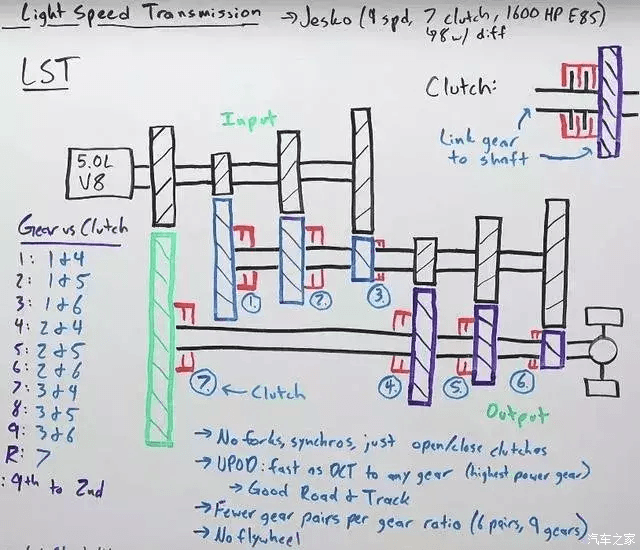 Light Speed Transmission → Jesko (9 spd, 7 clutch, 1600 HP E85)
↳8 w/ diff
LST
Clutch:
Input
Link gear
to shaft
5.0L
V8
Gear vs Clutch
1: 1 & 4
2: 1 & 5
3: 1 & 6
4: 2 & 4
5: 2 & 5
6: 2 & 6
7: 3 & 4
8: 3 & 5
9: 3 & 6
R: 7
: 9th to 2nd
1.
2.
3.
7.
← Clutch
4.
5.
6.
Output
→ No forks, synchros, just open/close clutches
→ UPOD: fast as DCT to any gear (highest power gear)
→ Good Road & Track
→ Fewer gear pairs per gear ratio (6 pairs, 9 gears)
→ No flywheel
汽车之家